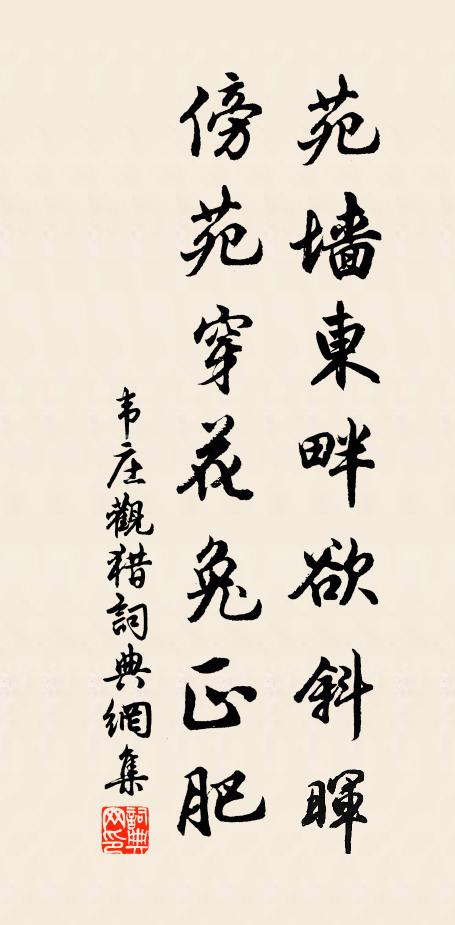 苑墙東畔欲斜暉
傍苑穿花兔正肥
韦庄觀猎詞典網集
詞典網印